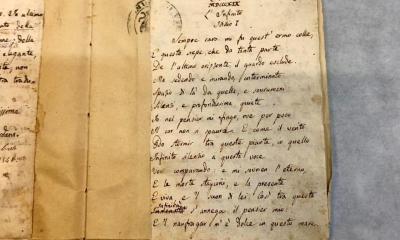 MDCCCXIX
L'Infinito
Idillio I
Sempre caro mi fu quest'ermo colle,
E questa siepe, che da tanta parte
De l'ultimo orizzonte il guardo esclude.
Ma sedendo e mirando, interminato
Spazio di là da quella, e sovrumani
Silenzi, e profondissima quiete
Io nel pensier mi fingo, ove per poco
Il cor non si spaura. E come il vento
Odo stormir tra queste piante, io quello
Infinito silenzio a questa voce
Vo comparando: e mi sovvien l'eterno,
E le morte stagioni, e la presente
E viva, e 'l suon di lei. Così tra questa
s'annega il pensier mio:
E 'l naufragar m'è dolce in questo mare.